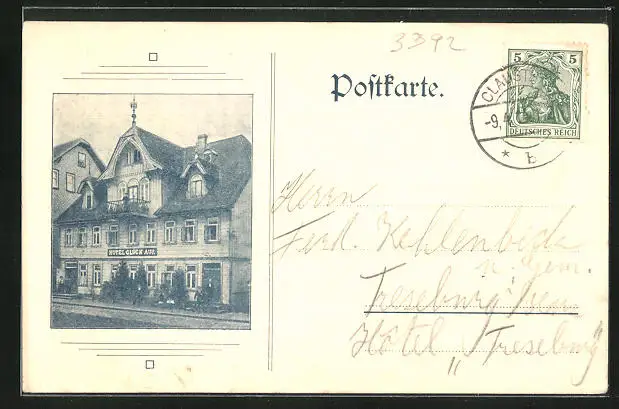 3392
Postkarte.
5 5
DEUTSCHES REICH
CLAUST
-9.
* b
HOTEL GLÜCK AUF.
Herrn
Ferd. Kehlenbeck
u. Gem.
Treseburg
Hôtel „Treseburg"